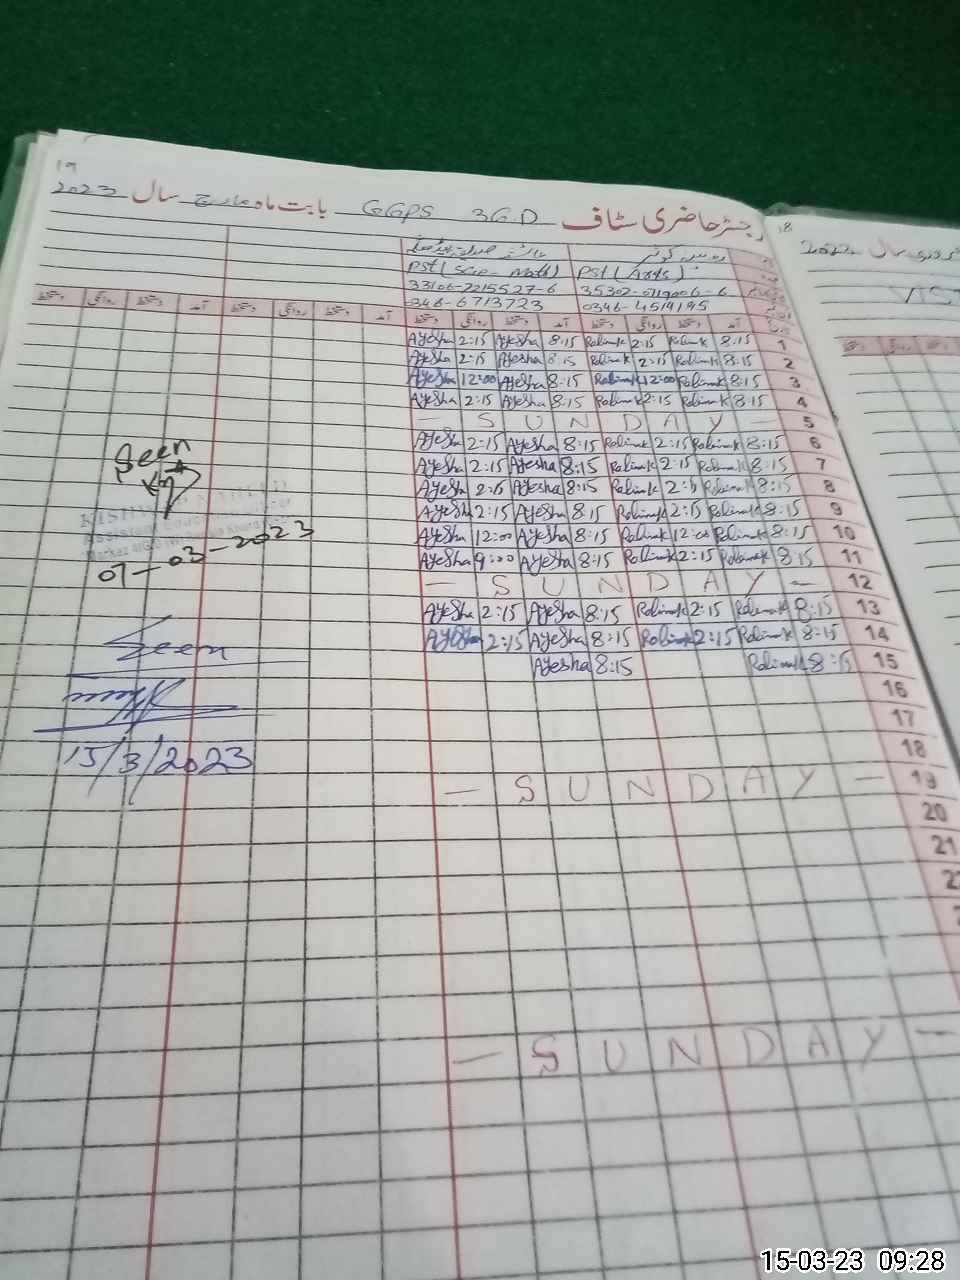 19
رجسٹر حاضری سٹاف GGPS 36.D بابت ماہ مارچ سال 2023
PST (Arts) PST (Scie- Math)
33106-2215527-6
0346-4519195 0346-6713723
آمد دستخط روانگی دستخط آمد دستخط روانگی دستخط آمد دستخط روانگی دستخط آمد دستخط روانگی دستخط
Ayesha 2:15 Ayesha 8:15 Robinak 2:15 Robinak 8:15 1
Ayesha 2:15 Ayesha 8:15 Robinak 2:15 Robinak 8:15 2
Ayesha 12:00 Ayesha 8:15 Robinak 12:00 Robinak 8:15 3
Ayesha 2:15 Ayesha 8:15 Robinak 2:15 Robinak 8:15 4
- S U N D A Y - 5
Ayesha 2:15 Ayesha 8:15 Robinak 2:15 Robinak 8:15 6
Ayesha 2:15 Ayesha 8:15 Robinak 2:15 Robinak 8:15 7
Ayesha 2:15 Ayesha 8:15 Robinak 2:15 Robinak 8:15 8
Ayesha 2:15 Ayesha 8:15 Robinak 2:15 Robinak 8:15 9
Ayesha 12:00 Ayesha 8:15 Robinak 12:00 Robinak 8:15 10
Ayesha 9:00 Ayesha 8:15 Robinak 2:15 Robinak 8:15 11
- S U N D A Y - 12
Ayesha 2:15 Ayesha 8:15 Robinak 2:15 Robinak 8:15 13
Ayesha 2:15 Ayesha 8:15 Robinak 2:15 Robinak 8:15 14
Ayesha 8:15 Robinak 8:15 15
16
17
18
- S U N D A Y - 19
20
21
- S U N D A Y -
Seen
07-03-2023
Seen
15/3/2023
18
سال 2022
VIST
15-03-23 09:28